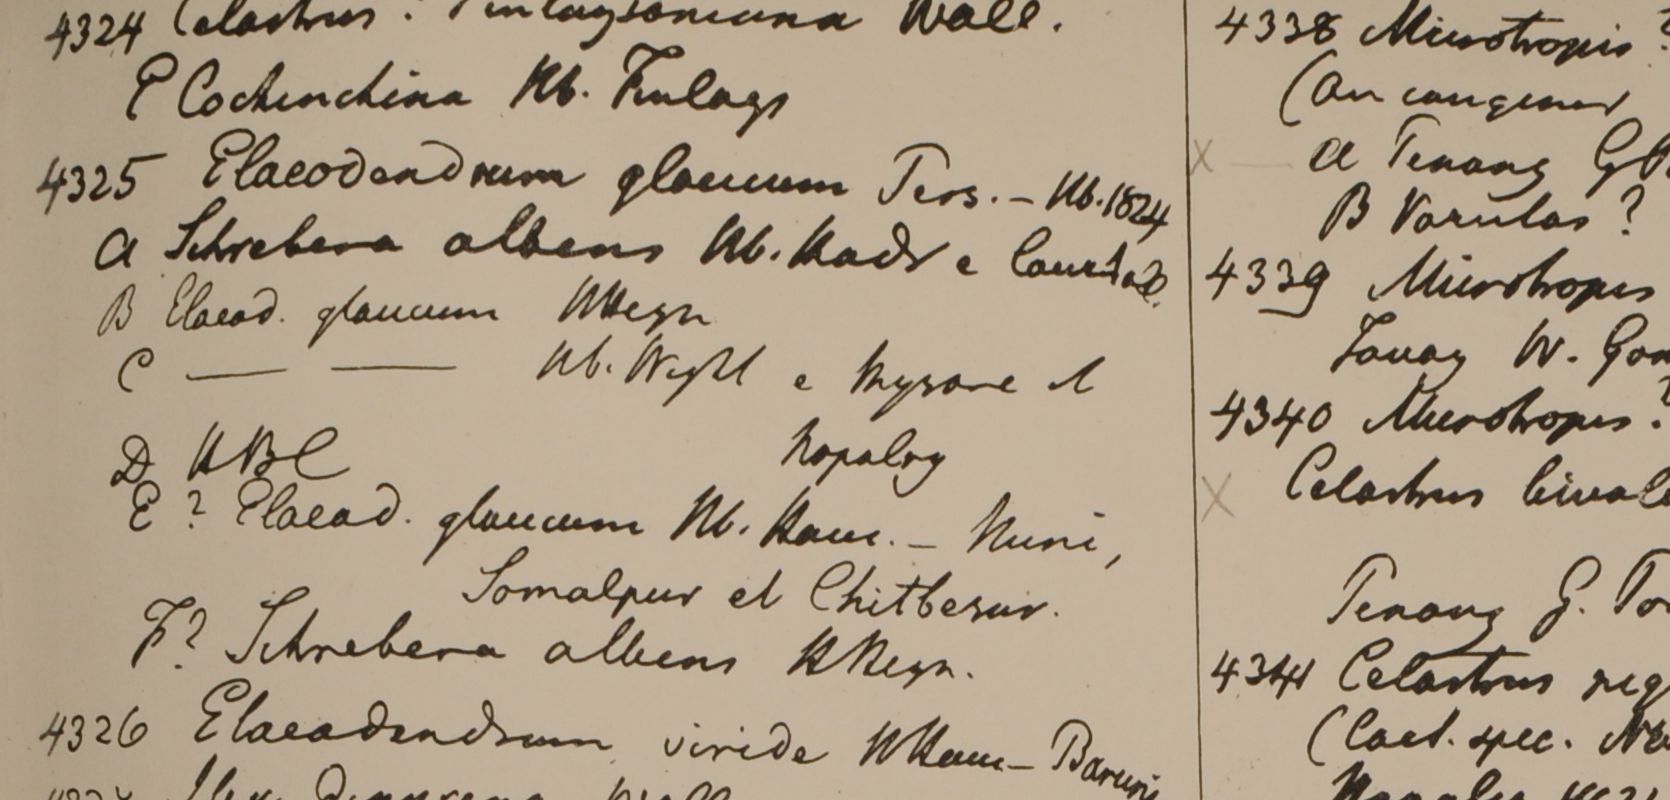 4324 Celastrus? Finlaysoniana Wall.
E Cochinchina Hb. Finlays
4325 Elaeodendrum glaucum Pers. – Hb. 1824
A Schrebera albens Hb. Madr e
B Elaeod. glaucum HHeyn
C — — Hb. Wight e Mysore et
Nopalog
D HBC
E ? Elaeod. glaucum Hb. Ham. – Nuni,
Somalpur et Chitbesur.
F? Schrebera albens HHeyn.
4326 Elaeodendrum viride HHam – Baruni
Ilex Wall
4338 Microtropis?
(an congener
A Penang
B Varulas?
4339 Microtropis
Tavoy W. Gom
4340 Microtropis?
Celastrus bival
Penang G. Po
4341 Celastrus rig
(Cael. spec.